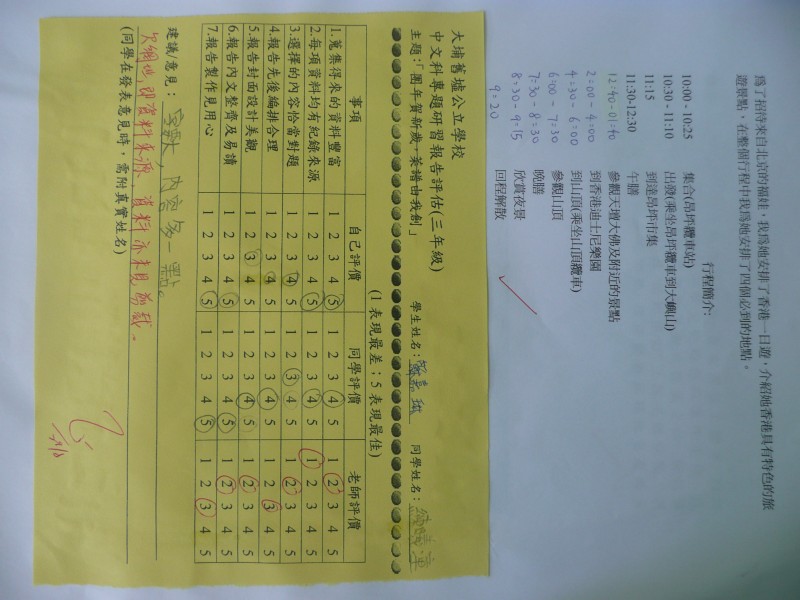 為了招待來自北京的福娃，我為她安排了香港一日遊，介紹她香港具有特色的旅
遊景點，在整個行程中我為她安排了四個必到的地點。
行程簡介:
10:00 - 10:25 集合(昂坪纜車站)
10:30 - 11:10 出發(乘坐昂坪纜車到大嶼山)
11:15 到達昂坪市集
11:30-12:30 午膳
12:40-01:40 參觀天壇大佛及附近的景點
2:00-4:00 到香港迪士尼樂園
4:30-6:00 到山頂(乘坐山頂纜車)
6:00-7:30 參觀山頂
7:30-8:30 晚膳
8:30-9:15 欣賞夜景
9:20 回程解散
大埔舊墟公立學校
中文科專題研習報告評估(三年級) 學生姓名: 嘉琳 同學姓名:
主題:「團年賀新歲，菜譜由我創」
(1 表現最差；5 表現最佳)
事項 自己評價 同學評價 老師評價
1.蒐集得來的資料豐富 1 2 3 4 5 1 2 3 4 5 1 2 3 4 5
2.每項資料均有紀錄來源 1 2 3 4 5 1 2 3 4 5 1 2 3 4 5
3.選擇的內容恰當對題 1 2 3 4 5 1 2 3 4 5 1 2 3 4 5
4.報告先後編排合理 1 2 3 4 5 1 2 3 4 5 1 2 3 4 5
5.報告封面設計美觀 1 2 3 4 5 1 2 3 4 5 1 2 3 4 5
6.報告內文整齊及易讀 1 2 3 4 5 1 2 3 4 5 1 2 3 4 5
7.報告製作見用心 1 2 3 4 5 1 2 3 4 5 1 2 3 4 5
建議/意見：字大，內容多一點。
欠網址/資料來源，資料亦未見剪裁。
(同學在發表意見時，需附真實姓名)